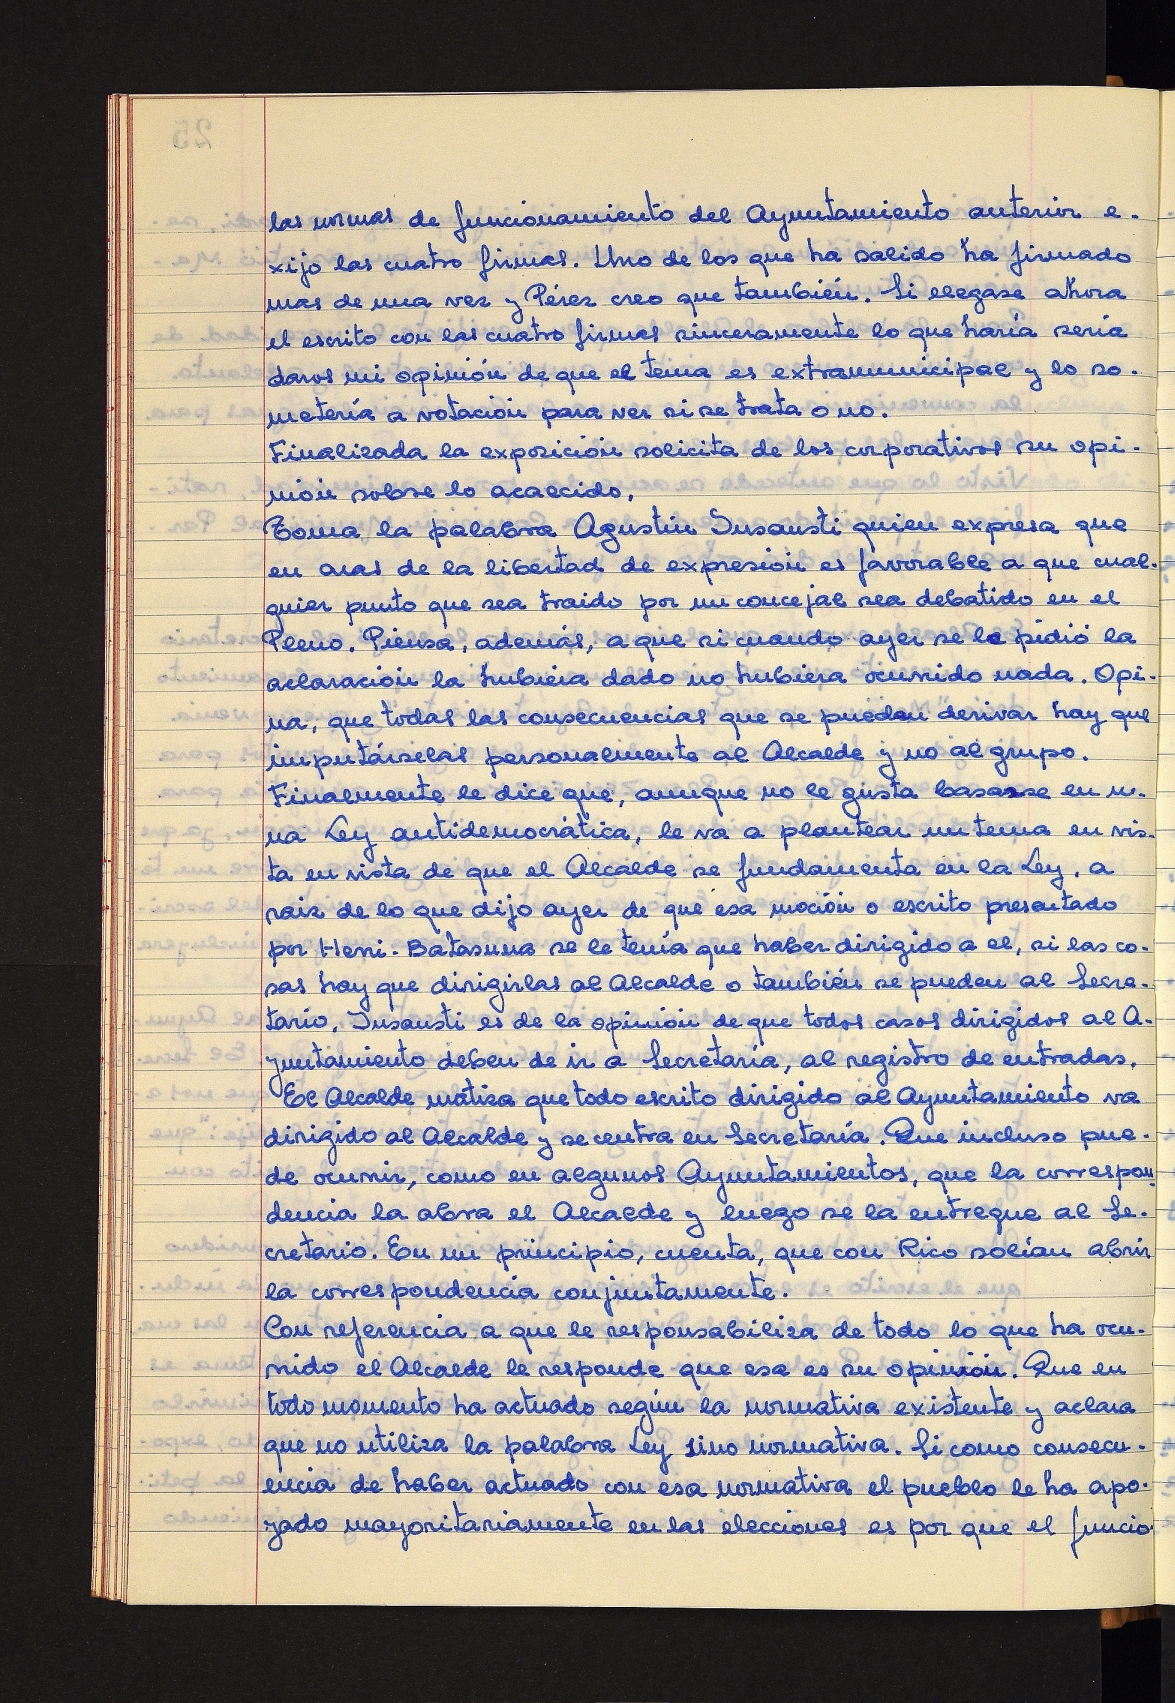 las normas de funcionamiento del Ayuntamiento anterior e-
xijo las cuatro firmas. Uno de los que ha salido ha firmado
mas de una vez y Pérez creo que también. Si llegase ahora
el escrito con las cuatro firmas sinceramente lo que haría sería
daros mi opinión de que el tema es extramunicipal y lo so-
metería a votación para ver si se trata o no.
Finalizada la exposición solicita de los corporativos su opi-
nión sobre lo acaecido.
Toma la palabra Agustín Insausti quien expresa que
en aras de la libertad de expresión es favorable a que cual-
quier punto que sea traido por un concejal sea debatido en el
Pleno. Piensa, además, a que si cuando ayer se le pidió la
aclaración la hubiera dado no hubiera ocurrido nada. Opi-
na, que todas las consecuencias que se puedan derivar hay que
imputárselas personalmente al Alcalde y no al grupo.
Finalmente le dice que, aunque no le gusta basarse en u-
na Ley antidemocrática, le va a plantear un tema en vis-
ta en vista de que el Alcalde se fundamenta en la Ley, a
raiz de lo que dijo ayer de que esa moción o escrito presentado
por Herri-Batasuna se le tenía que haber dirigido a el, si las co-
sas hay que dirigirlas al Alcalde o también se pueden al Secre-
tario, Insausti es de la opinión de que todos casos dirigidos al A-
yuntamiento deben de ir a Secretaría, al registro de entradas.
El Alcalde matiza que todo escrito dirigido al Ayuntamiento va
dirigido al Alcalde y se centra en Secretaría. Que incluso pue-
de ocurrir, como en algunos Ayuntamientos, que la correspon-
dencia la abra el Alcalde y luego se la entregue al Se-
cretario. En un principio, cuenta, que con Rico solían abrir
la correspondencia conjuntamente.
Con referencia a que le responsabiliza de todo lo que ha ocu-
rrido el Alcalde le responde que esa es su opinión. Que en
todo momento ha actuado según la normativa existente y aclara
que no utiliza la palabra Ley sino normativa. Si como consecu-
encia de haber actuado con esa normativa el pueblo le ha apo-
yado mayoritariamente en las elecciones es por que el funcio-